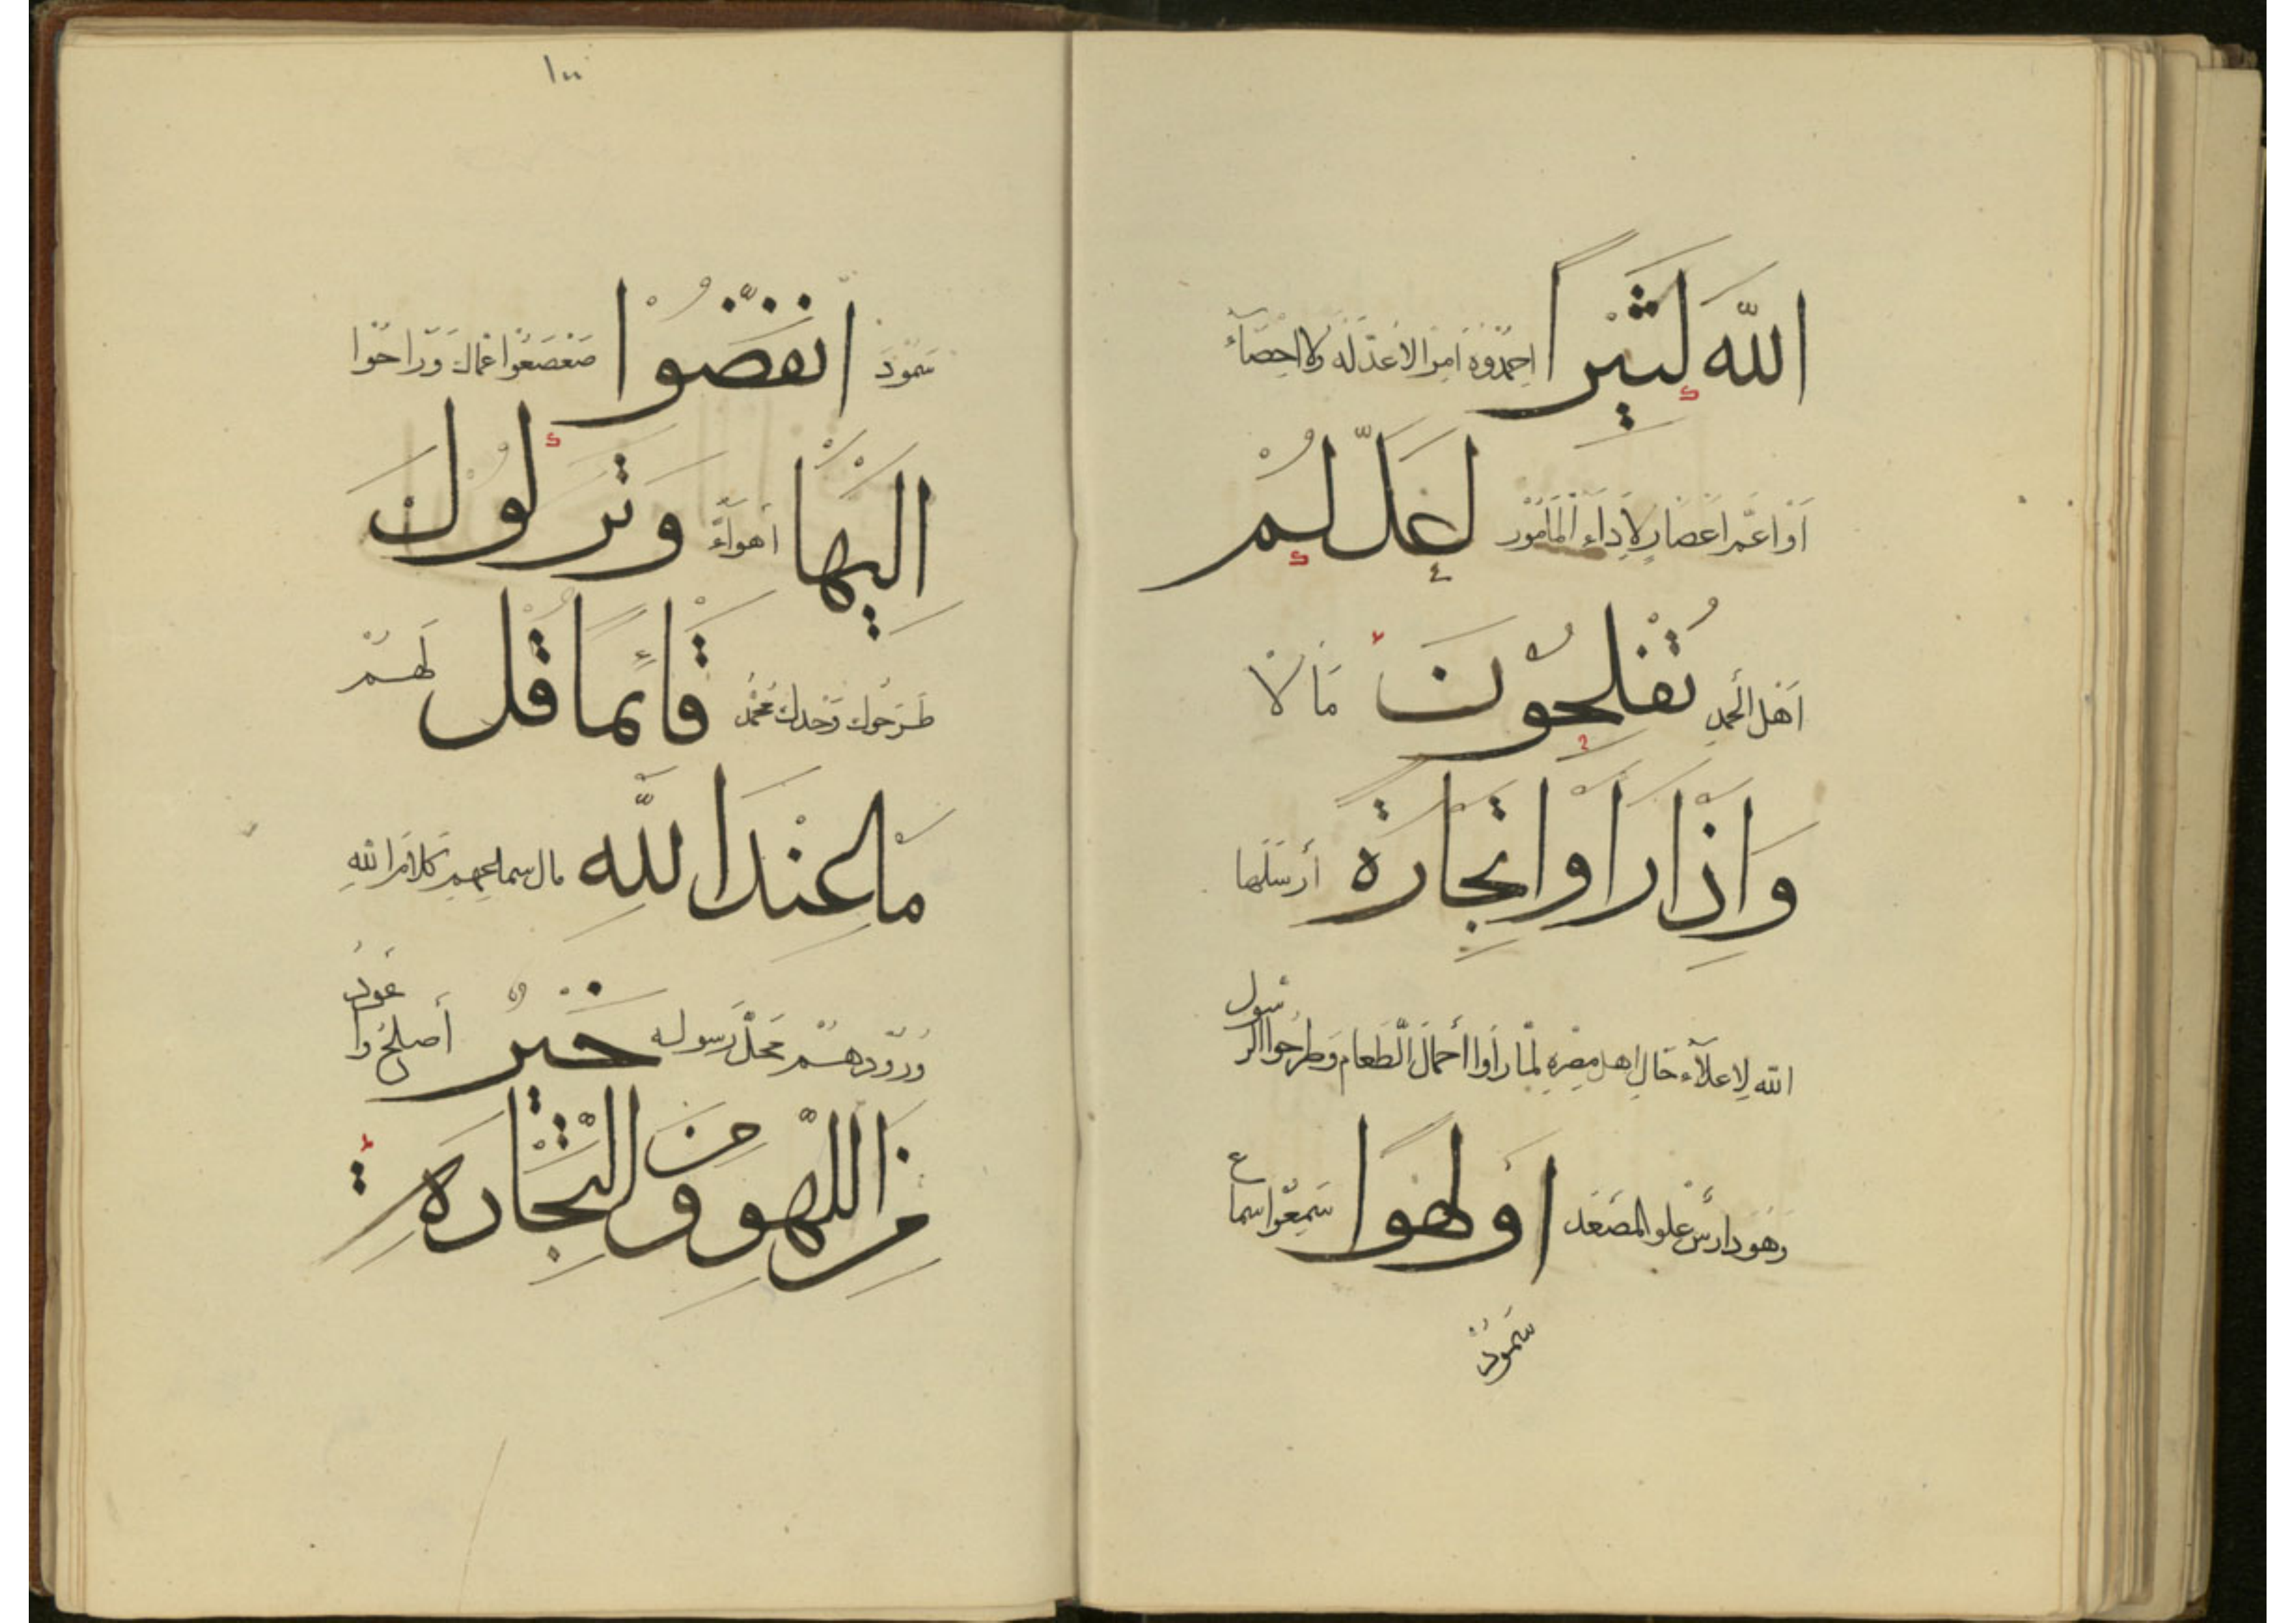 اللّٰهَ كَثِيْرًا احمدوه امرا لا عدّ له ولا احصآء
اواعمر اعصار لاداء المأمور لَعَلَّكُمْ
اهل الحمد تُفْلِحُوْنَ مٰالا
وَاِذَا رَاَوْا تِجَارَةً أرسلها
الله لاعلآء حال اهل مصره لما رأوا أحمال الطعام وطرحوا الرسول
وهو دارس علو المصعد اَوْ لَهْوًا سمعوا سماع
سمود
١٠٠
سمود انْفَضُّوْا صعصعوا عمالك وراحوا
اِلَيْهَا أهوآء وَتَرَكُوْكَ
طرحوك وحدك محمد قَائِمًا قُلْ لهم
مَا عِنْدَ اللّٰهِ مال سماعهم كلام الله
وورودهم محل رسوله خَيْرٌ أصلح وأعود
مِنَ اللَّهْوِ وَمِنَ التِّجَارَةِ